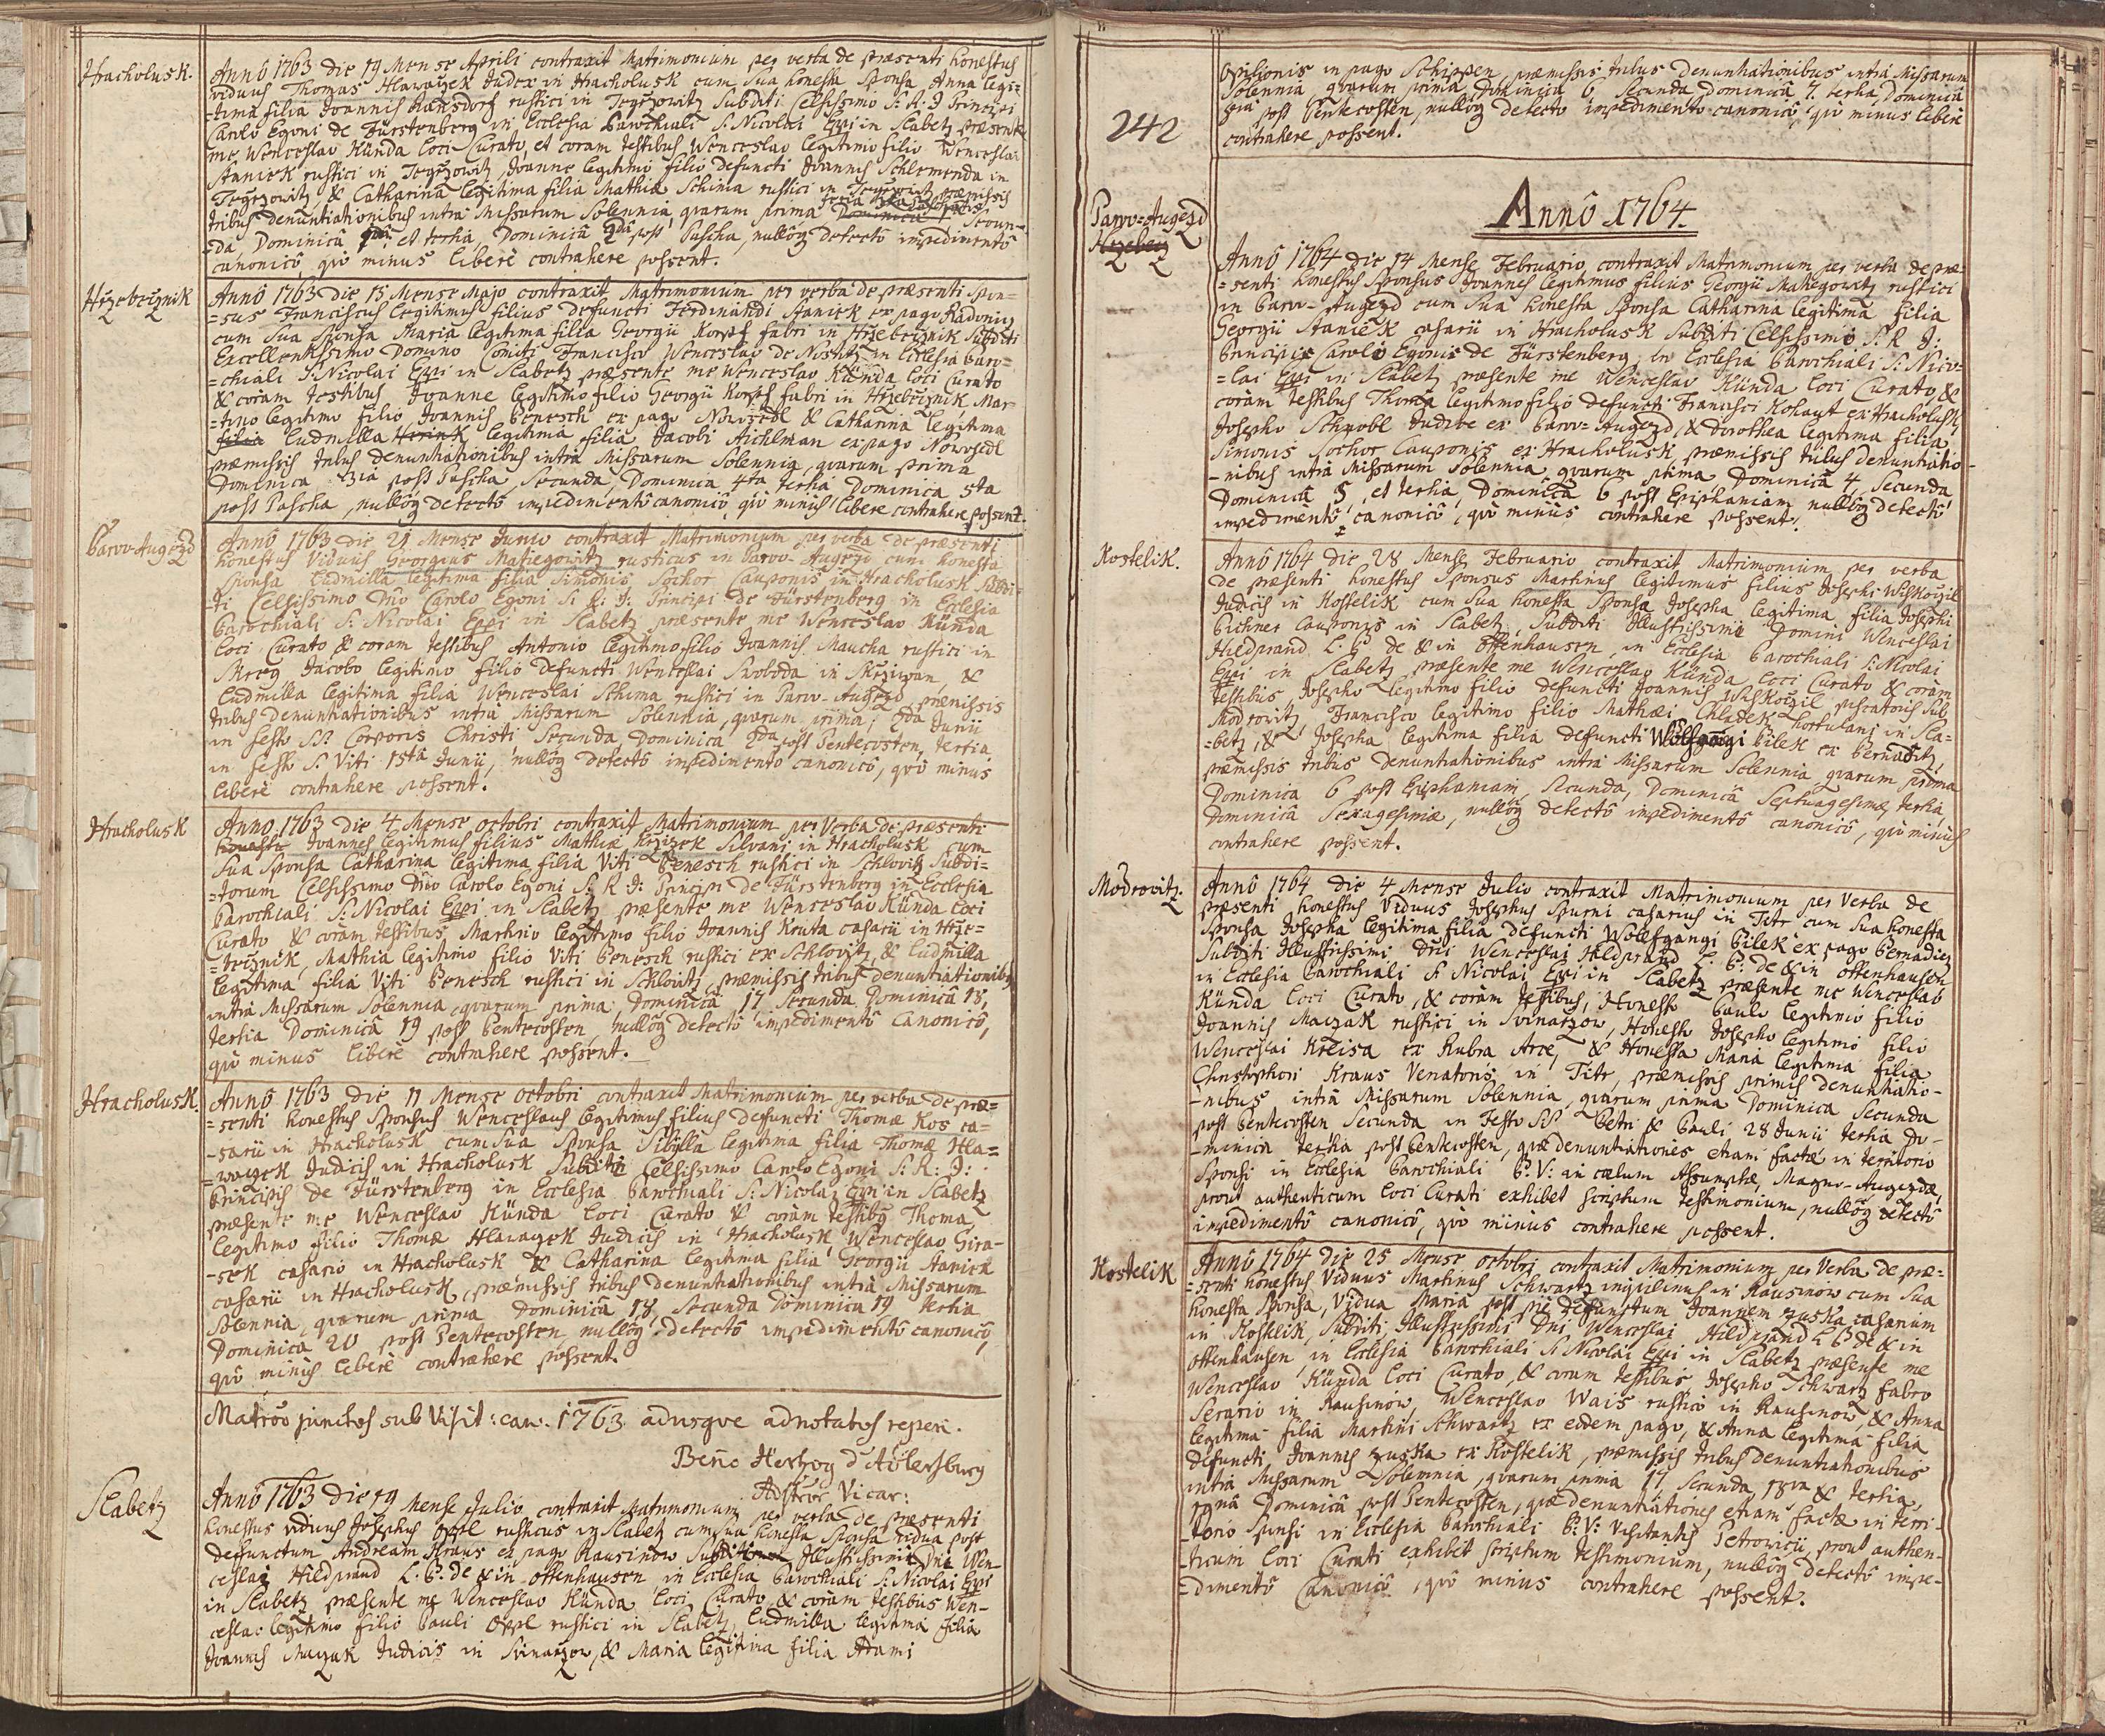 Hracholusk.
Annô 1763 die 19 Mense Aprili contraxit Matrimonium per verba de præsenti honestus
viduus Thomas Hlawaczek Judex in Hracholusk cum sua honesta Sponsa Anna legi-
-tima filia Joannis Ransdorf rustici in Tegrzowitz Subditi Celsissimo S: R: J Principi
Carolo Egoni de Fürstenberg in Ecclesia Parochiali S: Nicolai Eppi in Slabetz præsente
me Wenceslao Künda loci Curato, et coram testibus Wenceslao legitimo filio Wenceslai
Staniek rustici in Tegrzowitz, Joanne legitimo filio defuncti Joannis Schlemenda in
Tegrzowitz, & Catharina legitima filia Mathiæ Schima rustici in Tegrzowitz præmissis
tribus denuntiationibus intra Missarum Solennia, quarum prima Secun-
-da, Dominicâ et tertia, Dominicâ 2da post Pascha, nullôq detectô impedimentô
canonicô, quô minus liberè contrahere possent.
Hrzebecznik
Annô 1763 die 15 Mense Majo contraxit Matrimonium per verba de præsenti Spon=
=sus Franciscus legitimus filius defuncti Ferdinandi Staniek ex pago Kadoniy
cum Sua Sponsa Maria legitima filia Georgii Korpf fabri in Hrzebecznik Subditi
Excellentissimo Domino Comiti Francisco Wenceslao de Nostitz in Ecclesia Paro=
=chiali S: Nicolai Eppi in Slabetz præsente me Wenceslao Künda loci Curato
& coram testibus Joanne legitimo filio Georgii Korpf fabri in Hrzebecznik Mar=
=tino legitimo filio Joannis Benesch ex pago Nowosedl & Catharina legitima
filia Ludmilla legitima filia Jacobi Aichlman ex pago Nowosedl
præmissis tribus denuntiationibus intra Missarum Solennia, quarum prima
Dominica 3ia post Pascha Secunda, Dominica 4ta tertia Dominica 5ta
post Pascha, nullôq detectô impedimentô canonicô, quô minus liberè contrahere possent.
Parvo-Augezd
Annô 1763 die 21 Mense Junio contraxit Matrimonium per verba de præsenti
honestus Viduus Georgius Matiegowitz rusticus in Parvo-Augezd cum honesta
Sponsa Ludmilla legitima filia Simonis Sochor Cauponis in Hracholusk Subdi-
-ti Celsissimo Dno Carolo Egoni S: R: J: Principi de Fürstenberg in Ecclesia
Parochiali S: Nicolai Eppi in Slabetz præsente me Wenceslao Künda
loci Curato & coram testibus Antonio legitimo filio Joannis Maucha rustici in
Skrey Jacobo legitimo filio defuncti Wenceslai Swoboda in Skrziwan, &
Ludmilla legitima filia Wenceslai Schima rustici in Parvo-Augezd præmissis
tribus denuntiationibus intra Missarum Solennia, quarum prima; 2da Junii
in festo SS. Corporis Christi Secunda Dominica 2da post Pentecosten, tertia
in festo S. Viti 15ta Junii, nullôq detectô impedimento canonicô, quô minus
liberè contrahere possent.
Hracholusk
Anno 1763 die 4 Mense octobri contraxit Matrimonium per Verba de præsenti
honestus Joannes legitimus filius Mathiæ Krzizek Silvani in Hracholusk cum
Sua Sponsa Catharina legitima filia Viti Benesch rustici in Schlovitz Subdi=
=torum Celsissimo Dno Carolo Egoni S: R J: Principi de Fürstenberg in Ecclesia
Parochiali S: Nicolai Eppi in Slabetz præsente me Wenceslao Künda loci
Curato & coram testibus Martino legitimo filio Joannis Kruta casarii in Hrze=
=becznik, Mathia legitimo filio Viti Benesch rustici ex Schlovitz, & Ludmilla
legitima filia Viti Benesch rustici in Schlovitz, præmissis tribus denuntiationibus
intra Missarum Solennia, quarum prima; Dominicâ 17 Secunda Dominicâ 18,
tertia Dominicâ 19 post Pentecosten, nullôq detectô impedimentô Canonicô,
quô minus liberè contrahere possent.
Hracholusk.
Annô 1763 die 11 Mense octobri contraxit Matrimonium per verba de præ=
=senti honestus Sponsus Wenceslaus legitimus filius defuncti Thomæ Kos ca=
-sarii in Hracholusk cum sua Sponsa Sibylla legitima filia Thomæ Hla=
=waczek Judicis in Hracholusk Subditi Celsissimo Carolo Egoni S: R: J:
Principis de Fürstenberg in Ecclesia Parochiali S: Nicolai Eppi in Slabetz
præsente me Wenceslao Künda loci Curato & coram testibq Thoma
legitimo filio Thomæ Hlawaczek Judicis in Hracholusk, Wenceslao Gira-
-sek casario in Hracholusk & Catharina legitima filia Georgii Staniek
casarii in Hracholusk, præmissis tribus denuntiationibus intra Missarum
Solennia, quarum prima Dominica 18, Secunda Dominica 19 tertia
Dominica 20 post Pentecosten nullôq detectô impedimentô canonicô,
quô minus liberè contrahere possent.
Matrõo junctos sub Visit: can. 1763 adusque adnotatos reperi.
Beno Hertzog d'Adlersburg
Vicar:
Slabetz
Annô 1763 die 19 Mense Julio contraxit Matrimonium per verba de præsenti
honestus viduus Josephus Oppl rusticus in Slabetz cum sua honesta Sponsa vidua post
defunctum Andream Kraus ex pago Rausinow Subditi Illustrissimi Dni Wen-
ceslai Hildprand L. B. de & in Ottenhausen in Ecclesia Parochiali S: Nicolai Eppi
in Slabetz præsente me Wenceslao Künda loci Curato, & coram testibus Wen-
ceslao legitimo filio Pauli Oppl rustici in Slabetz, Ludmilla legitima filia
Joannis Maczak Judicis in Svinarzow, & Maria legitima filia Adami
242
Opilionis in pago Schippen, præmissis tribus denuntiationibus intra Missarum
Solennia quarum prima Dominica 6 Secunda Dominica 7. tertia, Dominicâ
8va post Pentecosten, nullôq detecto impedimento canonicô, quô minus liberè
contrahere possent.
Annô 1764.
Parvo=Augezd
Annô 1764 die 14 Mense Februario contraxit Matrimonium per verba de præ=
=senti honestus Sponsus Joannes legitimus filius Georgii Matiegowitz rustici
in Parvo-Augezd cum Sua honesta Sponsa Catharina legitima filia
Georgii Staniek casarii in Hracholusk Subditi Celsissimo S: R J:
Principis Caroli Egonis de Fürstenberg, in Ecclesia Parochiali S: Nico=
=lai Eppi in Slabetz præsente me Wenceslao Künda loci Curato, &
coram testibus Thoma legitimo filio defuncti Francisci Kohaut ex Hracholusk,
Josepho Schwobl Judice ex Parvo-Augezd, & Dorothea legitima filia
Simonis Sochor Cauponis ex Hracholusk præmissis tribus denuntiatio-
-nibus intra Missarum Solennia quarum prima Dominicâ 4, Secunda
Dominicâ 5, et tertia, Dominicâ 6 post Epiphaniam nullôq detectô
impedimentô canonicô, quô minus contrahere possent.
Kostelik.
Annô 1764 die 28 Mense Februario contraxit Matrimonium per verba
de præsenti honestus Sponsus Martinus legitimus filius Josephi Wiskoczil
Judicis in Kostelik cum Sua honesta Sponsa Josepha legitima filia Josephi
Pichner Cauponis in Slabetz Subditi Illustrissimi Domini Wenceslai
Hildprand L. B de & in Ottenhausen, in Ecclesia Parochiali S: Nicolai
Eppi in Slabetz præsente me Wenceslao Künda loci Curato & coram
testibus Josepho legitimo filio defuncti Joannis Wiskoczil piscatoris sub
Modrovitz, Francisco legitimo filio Mathæi Chladek hortulani in Sla-
-betz, & Josepha legitima filia defuncti Wolfgangi Bilek ex Bernaditz,
præmissis tribus denuntiationibus intra Missarum Solennia quarum prima
Dominica 6 post Epiphaniam, Secunda, Dominicâ Septuagesimæ tertia,
Dominicâ Sexagesimæ, nullôq detectô impedimentô canonicô, quô minus
contrahere possent.
Modrovitz:
Annô 1764 die 4 Mense Julio contraxit Matrimonium per Verba de
præsenti honestus Viduus Josephus Spurni casarius in Titr cum Sua honesta
Sponsa Josepha legitima filia defuncti Wolffgangi Bilek ex pago Bernadicz
Subditi Illustrissimi Dni Wenceslai Hildprand L: B: de & in Ottenhausen
in Ecclesia Parochiali S: Nicolai Eppi in Slabetz præsente me Wenceslao
Künda loci Curato, & coram testibus, Honesto Paulo legitimo filio
Joannis Maczak rustici in Svinarzow, Honesto Josepho legitimo filio
Wenceslai Kreisa ex Rubra Arce, & Honesta Maria legitima filia
Christophori Kraus Venatoris in Titr, præmissis primis denuntiatio-
-nibus intra Missarum Solennia, quarum prima Dominica Secunda
post Pentecosten Secunda in Festo SS. Petri & Pauli 28 Junii tertia Do-
-minica tertia post Pentecosten, quæ denuntiationes etiam factæ in territorio
Sponsi in Ecclesia Parochiali B: V: in cælum Assumptæ, Magno-Augezdæ,
prout authenticum loci Curati exhibet scriptum testimonium, nullôq detectô
impedimentô canonicô, quô minus contrahere possent.
Kostelik
Annô 1764 die 25 Mense octobri contraxit Matrimonium per Verba de præ=
=senti honestus Viduus Martinus Schwartz inquilinus in Rausinow cum Sua
honesta Sponsa, Vidua Maria post piè defunctum Joannem Zuska casarium
in Kostelik, Subditi Illustrissimi Dni Wenceslai Hildprand L B de & in
Ottenhausen in Ecclesia Parochiali S: Nicolai Eppi in Slabetz præsente me
Wenceslao Künda loci Curato, & coram testibus Josepho Schwartz fabro
Serario in Rausinow, Wenceslao Wais rustico in Rausinow, & Anna
legitima filia Martini Schwartz ex eodem pago, & Anna legitima filia
defuncti Joannis Zuska ex Kostelik, præmissis tribus denuntiationibus
intra Missarum Solemnia, quarum prima 17, Secunda, 18va & tertia,
19na Dominica post Pentecosten, quæ denuntiationes etiam factæ in terri-
-torio Sponsi in Ecclesia Parochiali B: V: Visitantis Petrovicii, prout authen-
-ticum loci Curati exhibet scriptum testimonium, nullôq detectô impe-
-dimentô Canonicô, quô minus contrahere possent.